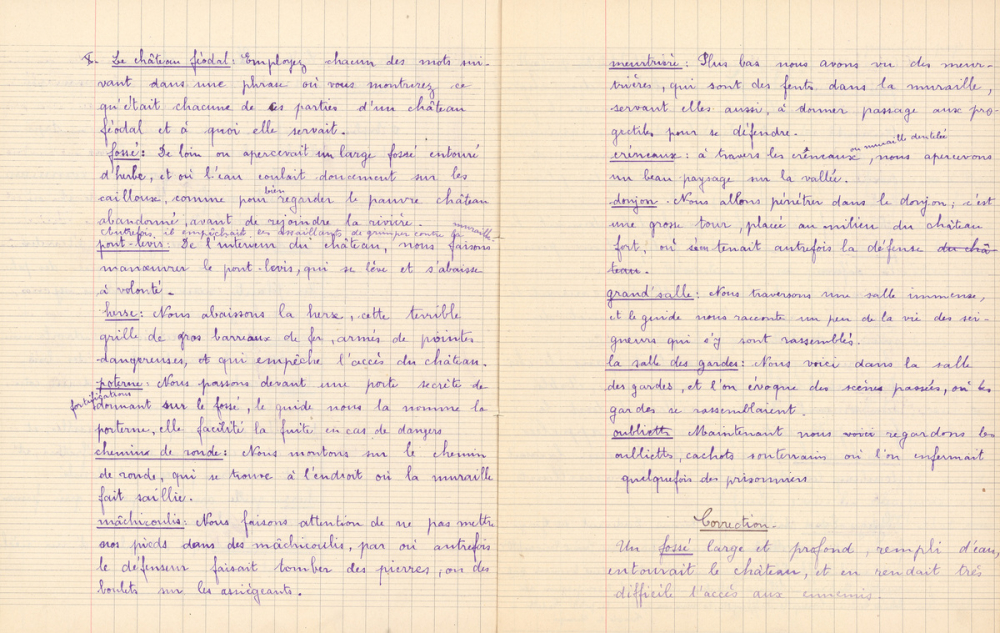 8. Le château féodal : Employez chacun des mots sui-
vant dans une phrase où vous montrerez ce
qu'était chacune de ces parties d'un château
féodal et à quoi elle servait.
fossé : De loin on apercevait un large fossé entouré
d'herbe, et où l'eau coulait doucement sur les
cailloux, comme pour bien regarder le pauvre château
abandonné, avant de rejoindre la rivière.
Autrefois, il empêchait, les assaillants de grimper contre la muraille.
pont-levis : De l'interieur du château, nous faisons
manœuvrer le pont-levis, qui se lève et s'abaisse
à volonté.
herse : Nous abaissons la herse, cette terrible
grille de gros barreaux de fer, armés de pointes
dangereuses, et qui empêche l'accès du château.
poterne : Nous passons devant une porte secrète de
fortifications donnant sur le fossé, le guide nous la nomme la
porterne, elle facilité la fuite en cas de dangers
chemins de ronde : Nous montons sur le chemin
de ronde, qui se trouve à l'endroit où la muraille
fait saillie.
mâchicoulis : Nous faisons attention de ne pas mettre
nos pieds dans des mâchicoulis, par où autrefois
le défenseur faisait tomber des pierres, ou des
boulets sur les assiégeants.
meurtrière : Plus bas nous avons vu des meur-
trières, qui sont des fents dans la muraille,
servant elles aussi, à donner passage aux pro-
jectiles pour se défendre.
créneaux : à travers les créneaux ou muraille dentelée, nous apercevons
un beau paysage sur la vallée.
donjon. Nous allons pénétrer dans le donjon ; c'est
une grosse tour, placée au milieu du château
fort, où se tenait autrefois la défense du châ-
teau.
grand'salle : Nous traversons une salle immense,
et le guide nous raconte un peu de la vie des sei-
gneurs qui s'y sont rassemblés.
la salle des gardes : Nous voici dans la salle
des gardes, et l'on évoque des scènes passées, où les
gardes se rassemblaient.
oubliette Maintenant nous voici regardons les
oubliettes, cachots souterrains où l'on enfermait
quelquefois des prisonniers
Correction.
Un fossé large et profond, rempli d'eau,
entourait le château, et en rendait très
difficile l'accès aux ennemis.